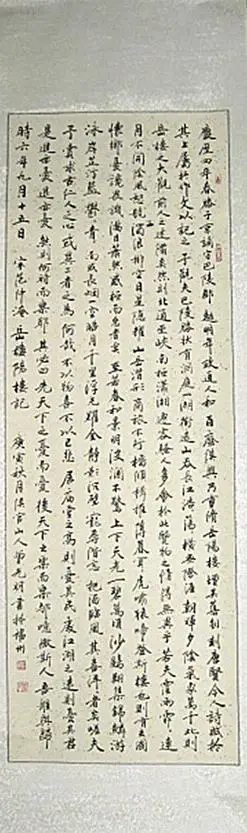 慶歷四年春滕子京謫守巴陵郡越明年政通人和百廢俱興乃重脩岳陽樓增其舊制刻唐賢今人詩賦於
其上屬於作文以記之予觀夫巴陵勝狀在洞庭一湖銜遠山吞長江浩浩湯湯橫無際涯朝暉夕陰氣象萬千此則
岳樓之大觀也前人之述備矣然則北通巫峽南極瀟湘遷客騷人多會於此覽物之情得無異乎若夫霪雨霏霏連
月不開陰風怒號濁浪排空日星隱耀山岳潛形商旅不行檣傾楫摧薄暮冥冥虎嘯猿啼登斯樓也則有去國
懷鄉憂讒畏譏滿目蕭然感極而悲者矣至若春和景明波瀾不驚上下天光一碧萬頃沙鷗翔集錦鱗游
泳岸芷汀蘭鬱鬱青青而或長煙一空皓月千里浮光耀金靜影沉璧寵辱皆忘把酒臨風其喜洋洋者矣嗟夫
予嘗求古仁人之心或異二者之為何哉不以物喜不以己悲居廟堂之高則憂其民處江湖之遠則憂其君
是進亦憂退亦憂然則何時而樂耶其必曰先天下之憂而憂後天下之樂而樂歟噫微斯人吾誰與歸
時六年九月十五日 宋范仲淹岳陽樓記 庚寅秋月山人光明書於揚州